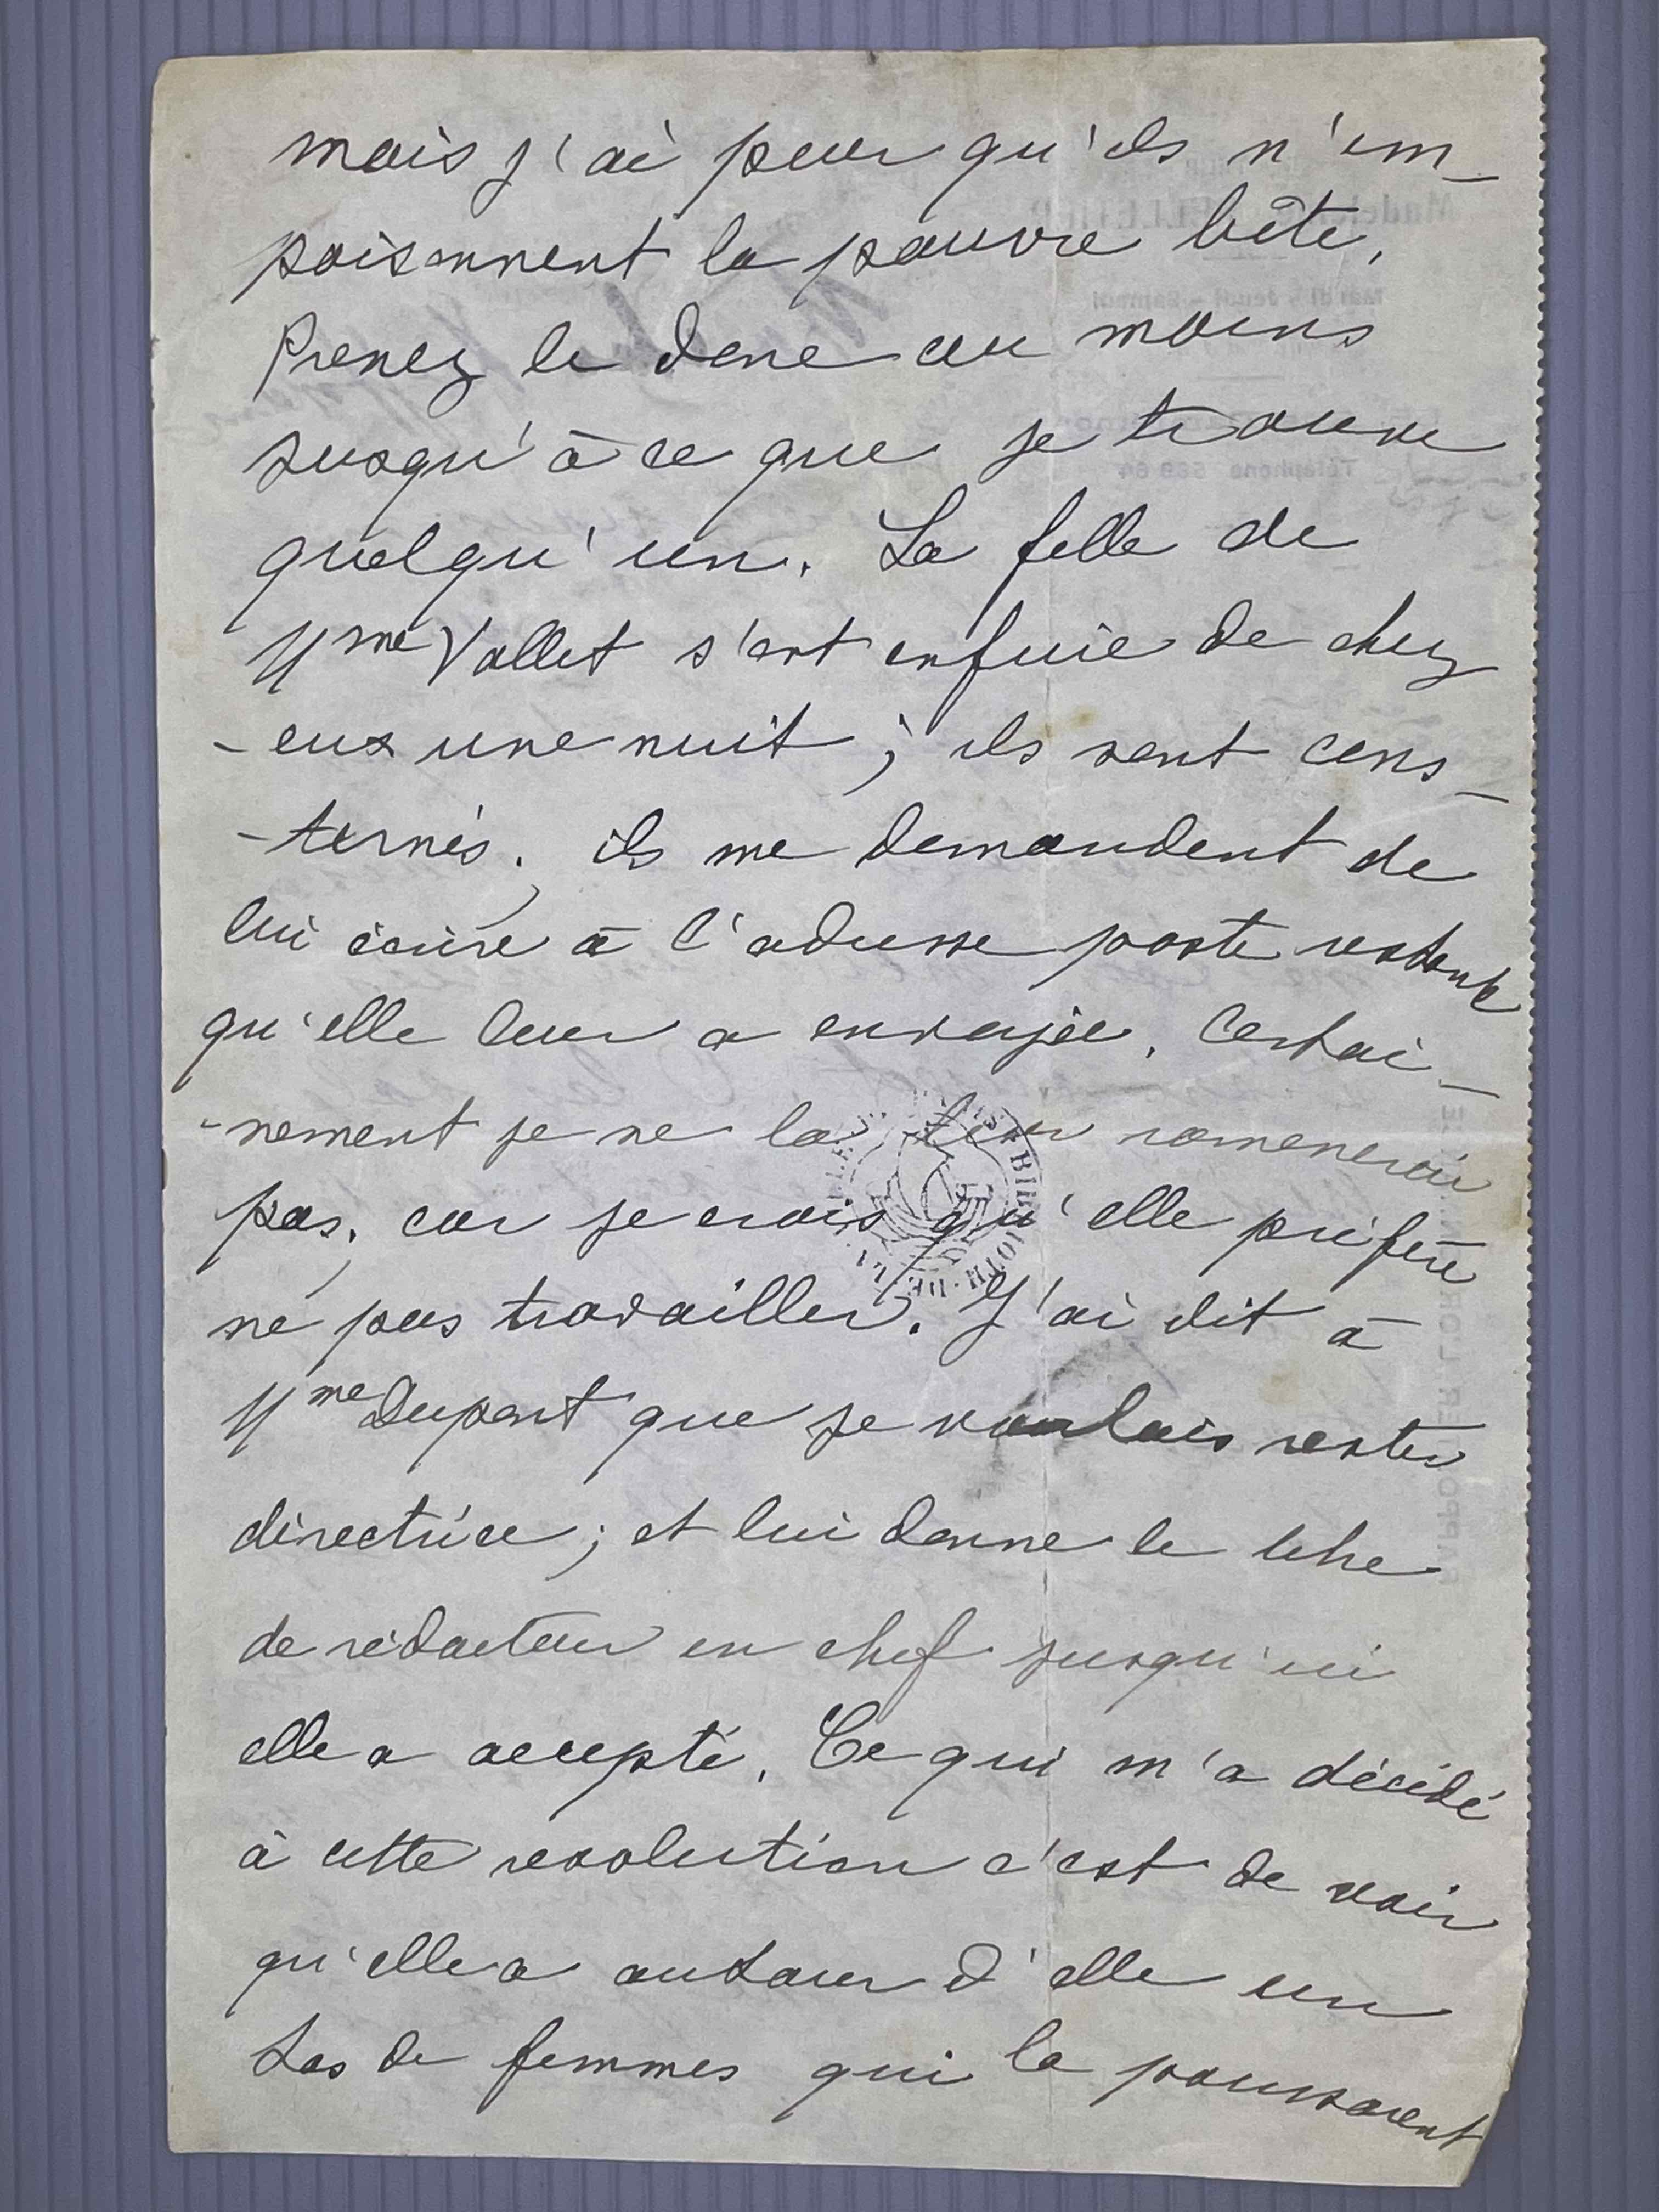 mais j'ai peur qu'ils n'em-
poisonnent la pauvre bête,
Prenez le donc au moins
jusqu'à ce que je trouve
quelqu'un. La fille de
Mme Vallet s'est enfuie de chez
-eux une nuit ; ils sont cons-
-ternés ; ils me demandent de
lui écrire à l'adresse poste restante
qu'elle leur a envoyée. Certai-
-nement je ne la leur ramenerai
pas ; car je crois qu'elle préfère
ne pas travailler. J'ai dit à
Mme Dupont que je voulais rester
directrice ; et lui donne le titre
de rédacteur en chef jusqu'ici
elle a accepté. Ce qui m'a décidé
à cette resolution c'est de voir
qu'elle a autour d'elle un
tas de femmes qui la poussaient